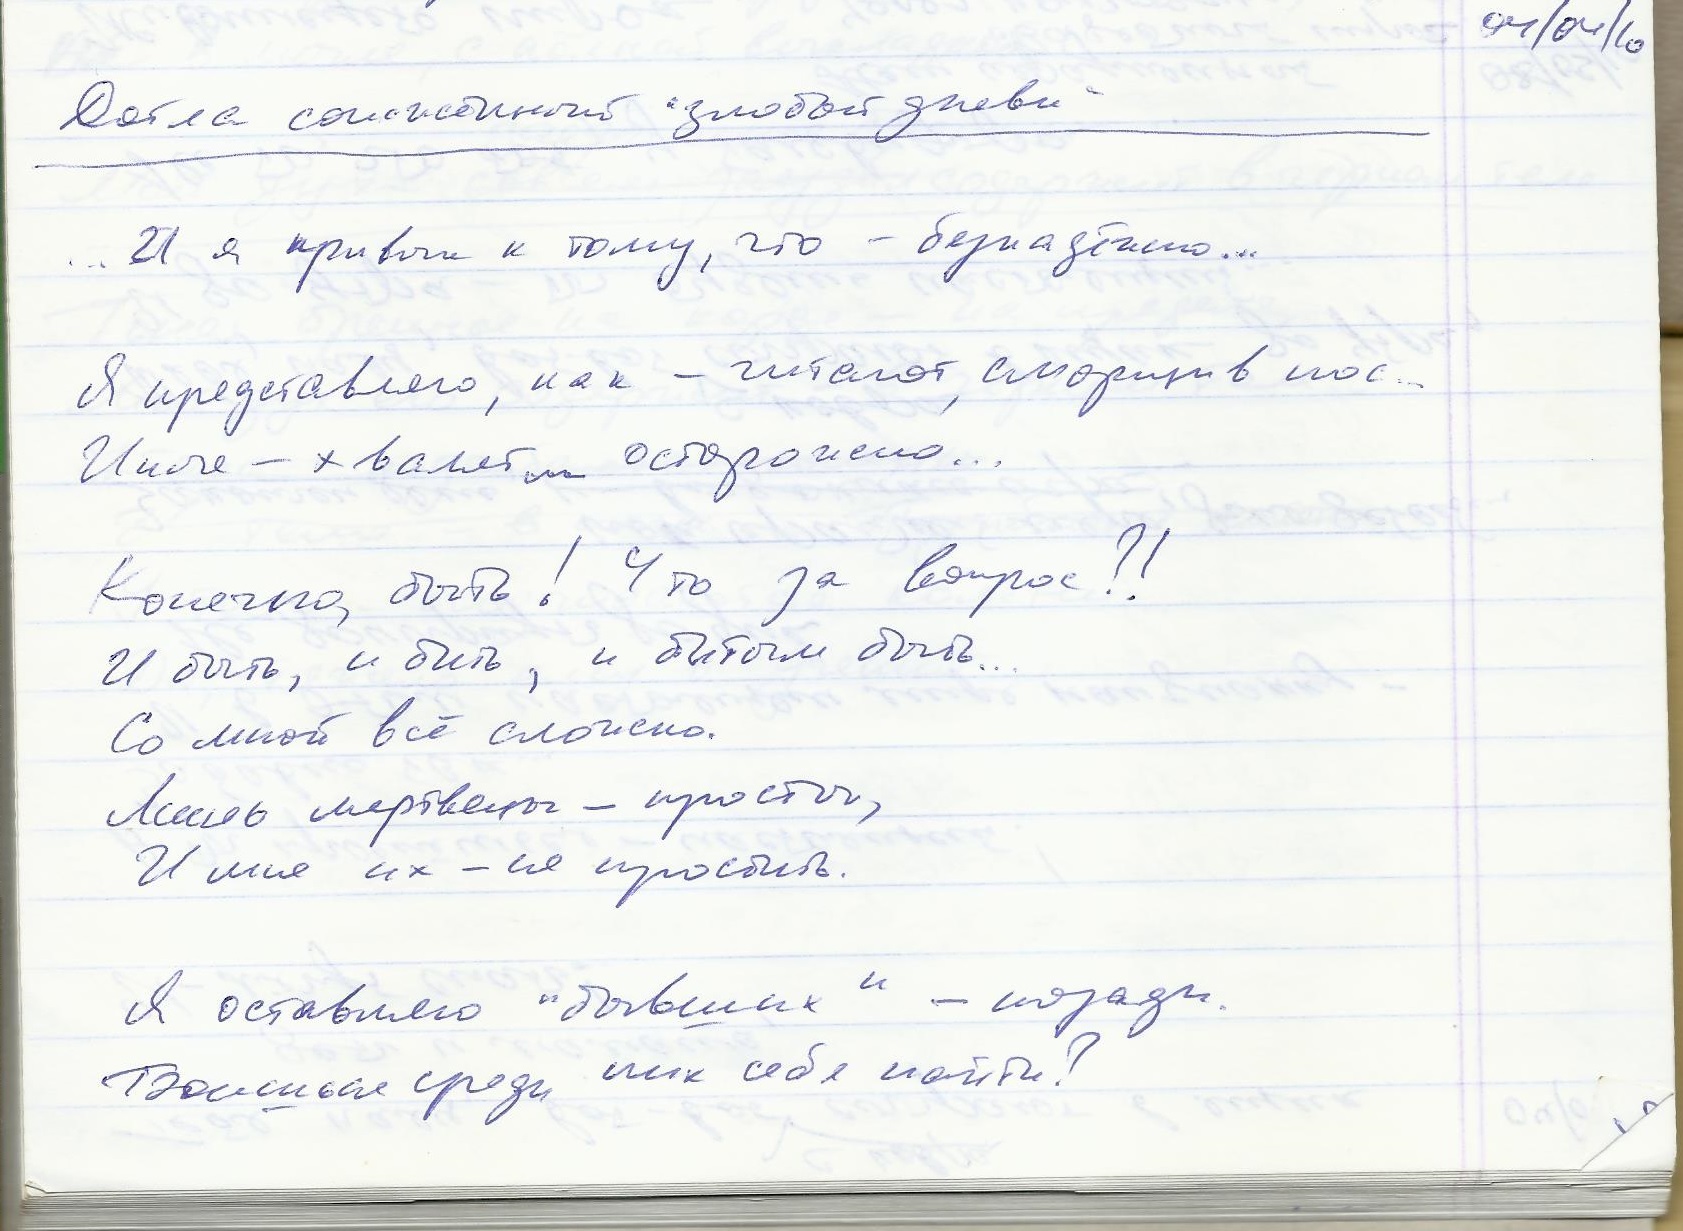 04/04/10
Дотла сожжённый "злобой дневи"
...И я привык к тому, что – безнадёжно...
Я представляю, как – читают, сморщив нос...
Иные – хвалят осторожно...
Конечно, быть! Что за вопрос?!
И быть, и бить, и битым быть...
Со мной всё сложно.
Лишь мертвецы – просты,
И мне их – не простить.
Я оставляю "бывших" – позади.
среди них себя найти?